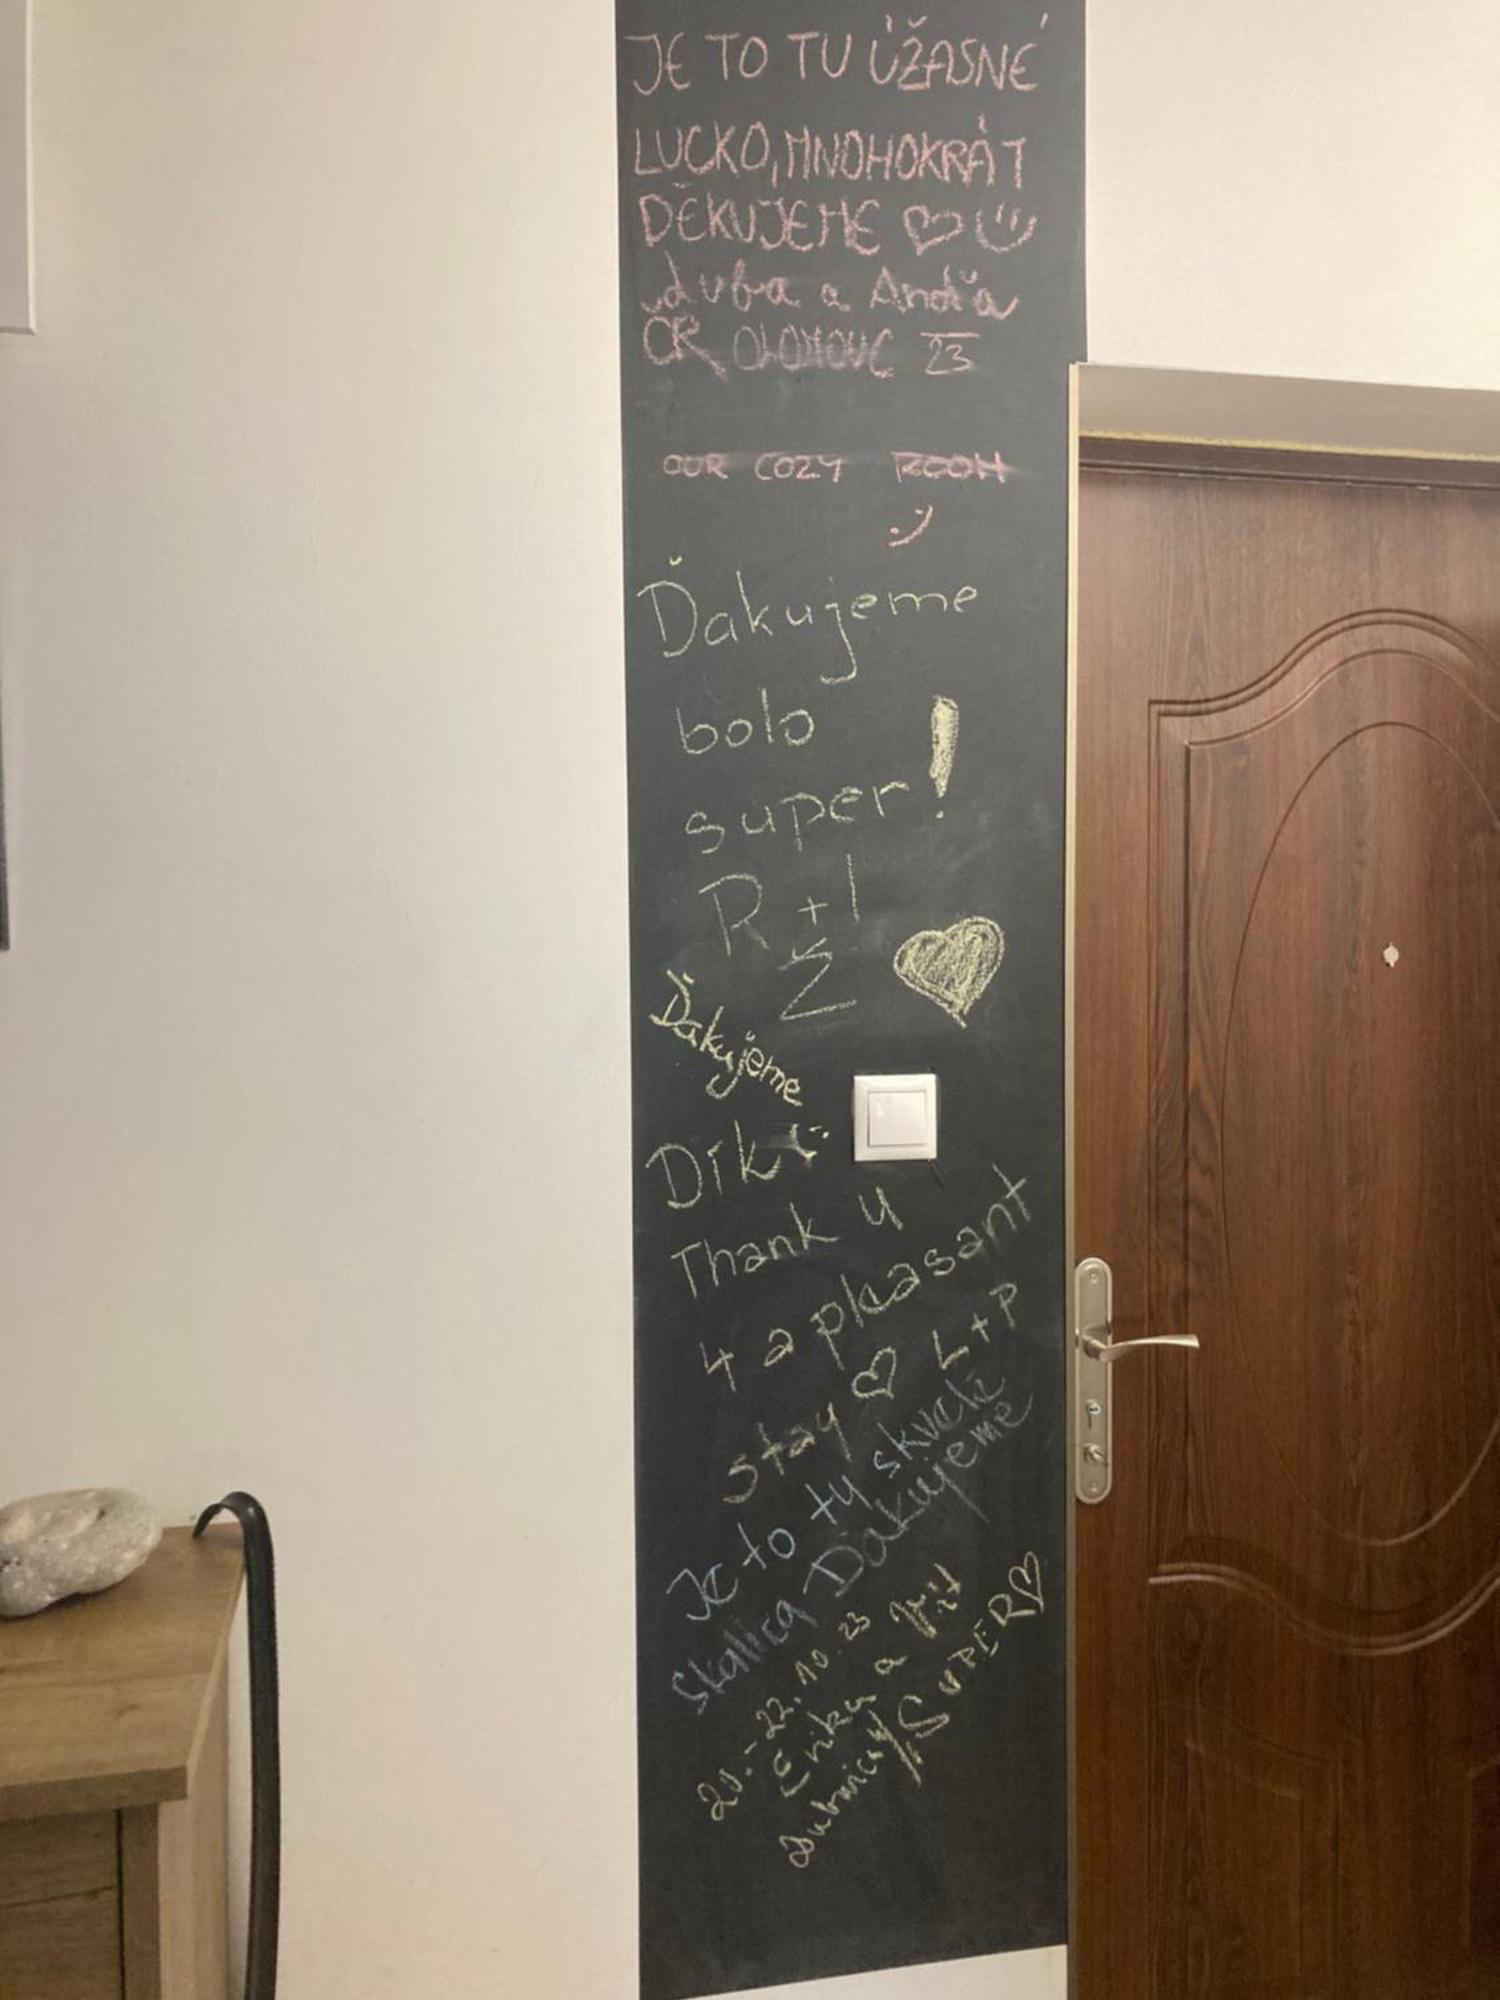 JE TO TU ÚŽASNÉ
LUCKO, MNOHOKRÁT
DĚKUJEME
a Anďa
ČR OLOMOUC 23
OUR COZY ROOM :)
Ďakujeme
bolo
super!
R + I
Ž
Ďakujeme
Dík :)
Thank u
4 a pleasant
stay L+P
Je to tu skvelé
Skalica Ďakujeme
20.-22.10.23
Erika a
SUPER